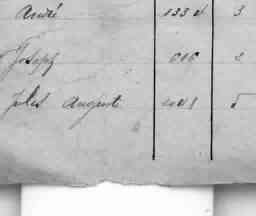 André 133 4 3
Joseph 616 2
Jules August 1041 5